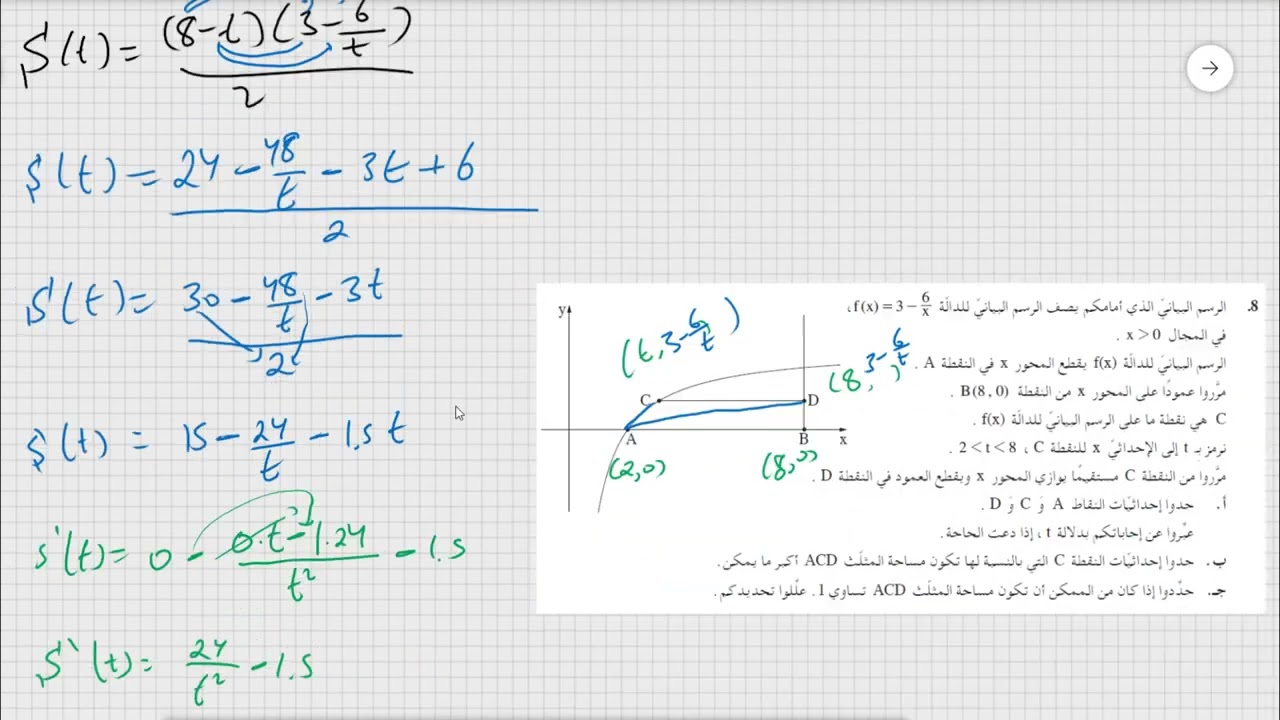 S(t) = (8-t)(3-6/t) / 2
S(t) = 24 - 48/t - 3t + 6 / 2
S(t) = 30 - 48/t - 3t / 2
S(t) = 15 - 24/t - 1.5t
s'(t) = 0 - 0.t - 1.24 / t² - 1.5
S'(t) = 24/t² - 1.5
8. الرسم البيانيّ الذي أمامكم يصف الرسم البيانيّ للدالّة f(x) = 3 - 6/x ،
في المجال x > 0 .
الرسم البيانيّ للدالّة f(x) يقطع المحور x في النقطة A .
مرَّروا عمودًا على المحور x من النقطة B(8, 0) .
C هي نقطة ما على الرسم البيانيّ للدالّة f(x) .
نرمز بـ t إلى الإحداثيّ x للنقطة C ، 2 < t < 8 .
مرَّروا من النقطة C مستقيمًا يوازي المحور x ويقطع العمود في النقطة D .
أ. حدِّدوا إحداثيّات النقاط A وَ C وَ D .
عبِّروا عن إجاباتكم بدلالة t ، إذا دعت الحاجة.
ب. حدِّدوا إحداثيّات النقطة C التي بالنسبة لها تكون مساحة المثلّث ACD أكبر ما يمكن.
جـ. حدِّدوا إذا كان من الممكن أن تكون مساحة المثلّث ACD تساوي 1. علِّلوا تحديدكم.
y
(t, 3-6/t)
(8, 3-6/t)
C
D
A
B
x
(2,0)
(8,0)